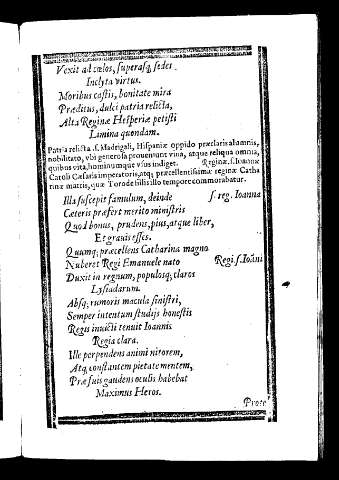 Vexit ad cœlos, superasq, sedes
Inclyta virtus.
Moribus castis, bonitate mira
Præditus, dulci patria relicta,
Alta Reginæ Hesperiæ petisti
Limina quondam.
Patria relicta .s. Madrigali, Hispaniæ oppido præclaris alumnis,
nobilitato, vbi generosa proueniunt vina, atque reliqua omnia,
quibus vita, hominumque vsus indiget. Reginæ .s. Ioannæ
Caroli Cæsaris imperatoris, atq; præcellentissimæ reginæ Catha
rinæ matris, quæ Torodesillis illo tempore commorabatur.
Illa suscepit famulum, deinde s. reg. Ioanna
Cæteris præfert merito ministris
Quod bonus, prudens, pius, atque liber,
Et grauis esses.
Quumq; præcellens Catharina magno
Nuberet Regi Emanuele nato Regi .s. Ioãni
Duxit in regnum, populosq; claros
Lysiadarum.
Absq; rumoris macula sinistri,
Semper intentum studijs honestis
Regis inuicti tenuit Ioannis
Regia clara.
Ille perpendens animi nitorem,
Atq, constantem pietate mentem,
Præ suis gaudens oculis habebat
Maximus Heros.
Prote